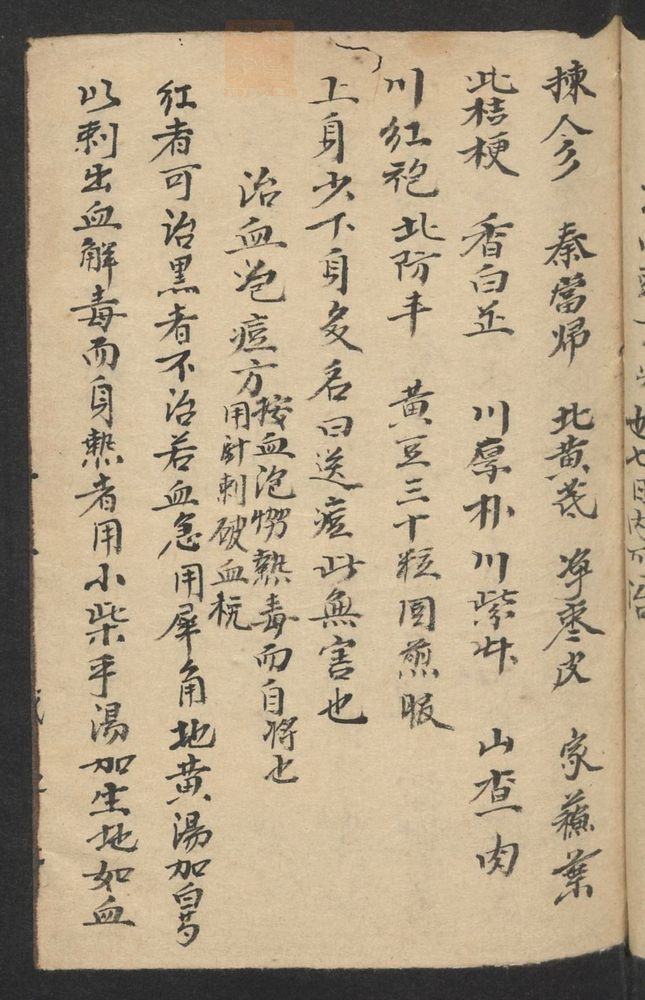 揀今 秦當歸 北黃芪 净棗皮 家蘇葉
北桔梗 香白芷 川厚朴 川紫草 山查肉
川紅花 北防丰 黃豆三十粒 同煎服
上身少下身多名曰送痘此無害也
治血泡痘方 按血泡 熱毒而自將也
用針刺破血
紅者可治黑者不治若血急用犀角地黃湯加白芍
以刺出血解毒而身熱者用小柴平湯加生地如血